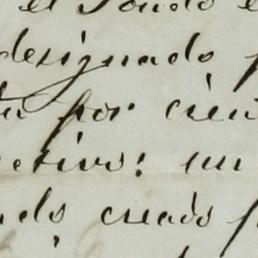 el Fondo e
designado p
ta por cien
ectivo: un
ndo creado p